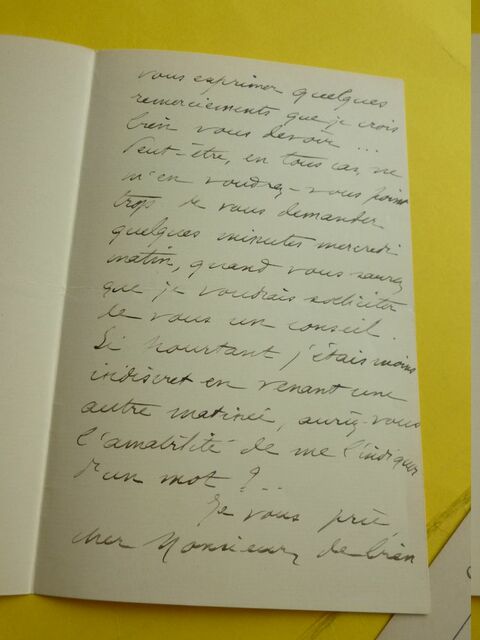 vous exprimer quelques
remerciements que je crois
bien vous devoir...
Peut-être, en tous cas, ne
m'en voudrez-vous point
trop de vous demander
quelques minutes mercredi
matin, quand vous saurez
que je voudrais solliciter
de vous un conseil.
Si pourtant j'étais moins
indiscret en venant une
autre matinée, auriez-vous
l'amabilité de me l'indiquer
d'un mot ?..
Je vous prie
cher Monsieur, de bien